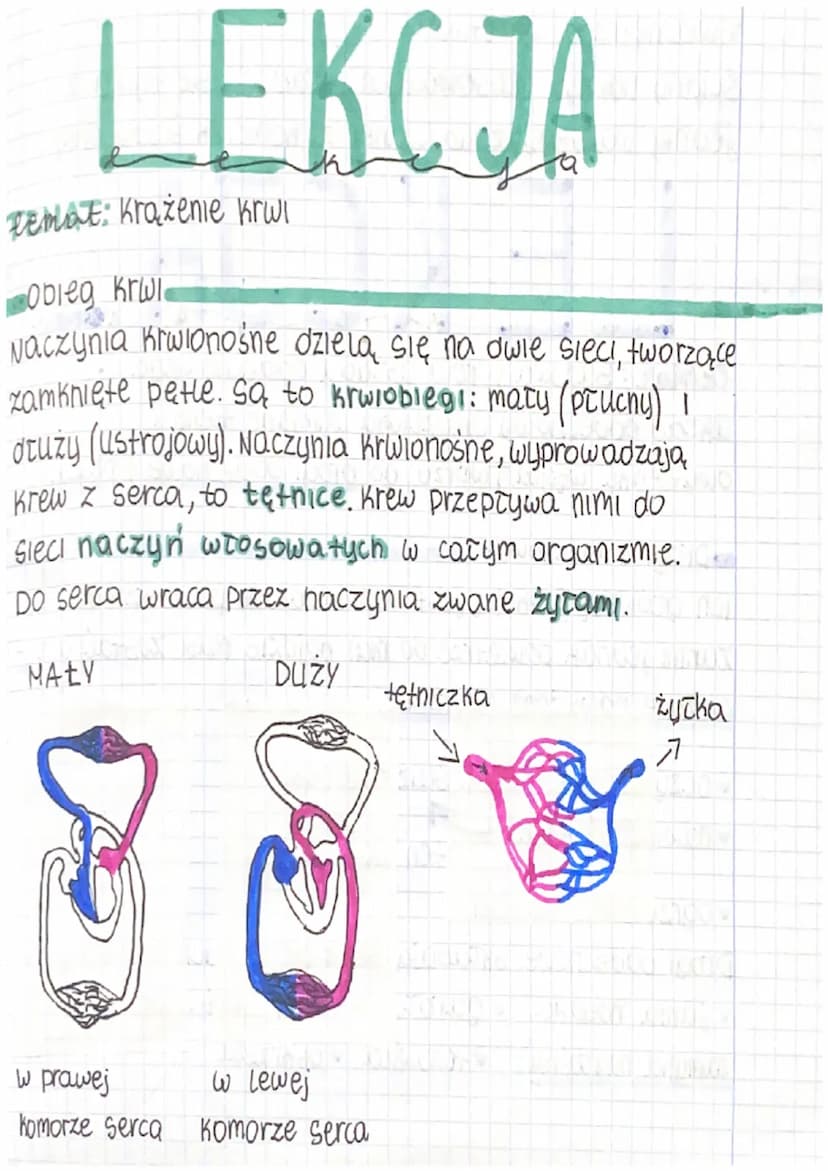 LEKCJA
lekcja
temat: krążenie krwi
obieg krwi
Naczynia krwionośne dzielą się na dwie sieci, tworzące
zamknięte pętle. Są to krwiobiegi: mały (płucny) i
dłuży (ustrojowy). Naczynia krwionośne, wyprowadzają
krew z serca, to tętnice. Krew przepływa nimi do
sieci naczyń włosowatych w całym organizmie.
Do serca wraca przez naczynia zwane żyłami.
MAŁY DUŻY
tętniczka żyłka
w prawej w lewej
komorze serca komorze serca